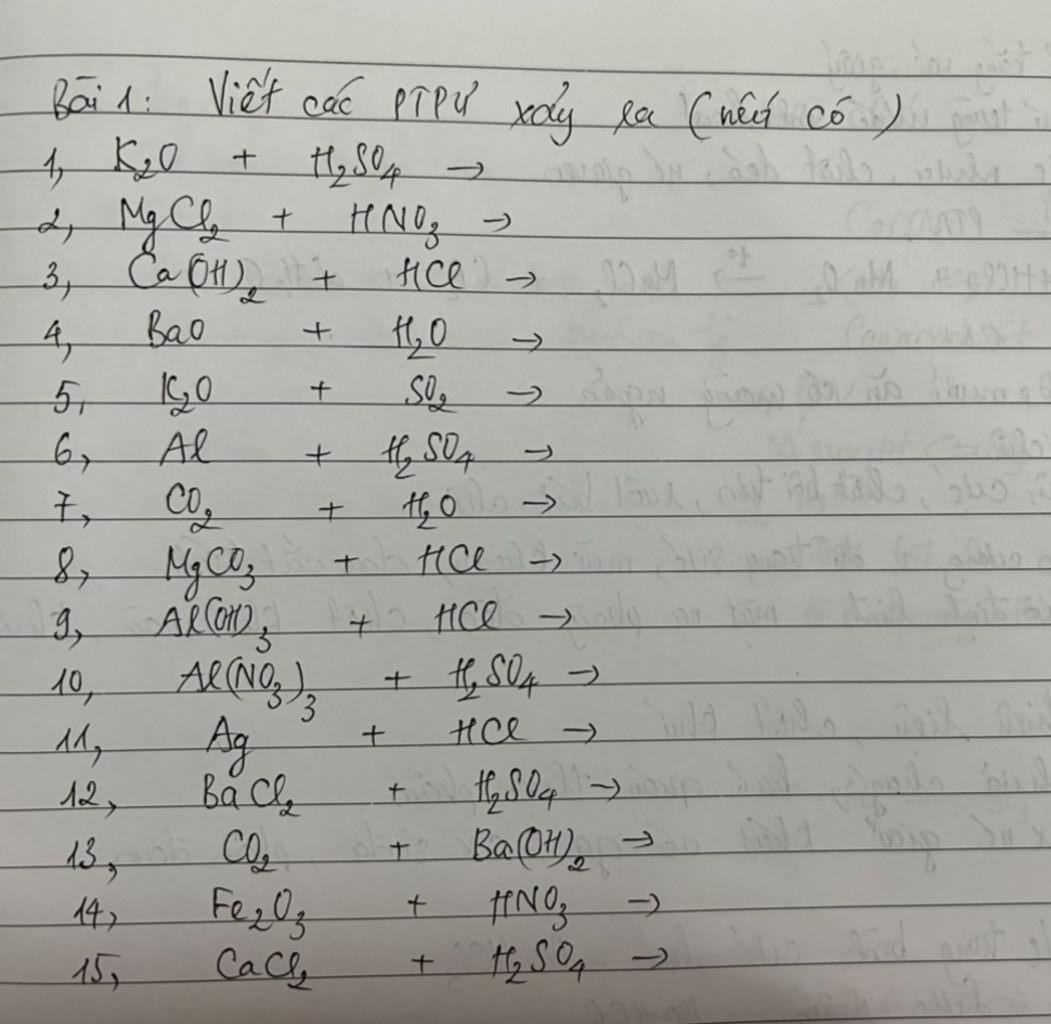 Bài 1: Viết các PTPƯ xảy ra (nếu có)
1, K₂O + H₂SO₄ →
2, MgCl₂ + HNO₃ →
3, Ca(OH)₂ + HCl →
4, BaO + H₂O →
5, K₂O + SO₂ →
6, Al + H₂SO₄ →
7, CO₂ + H₂O →
8, MgCO₃ + HCl →
9, Al(OH)₃ + HCl →
10, Al(NO₃)₃ + H₂SO₄ →
11, Ag + HCl →
12, BaCl₂ + H₂SO₄ →
13, CO₂ + Ba(OH)₂ →
14, Fe₂O₃ + HNO₃ →
15, CaCl₂ + H₂SO₄ →